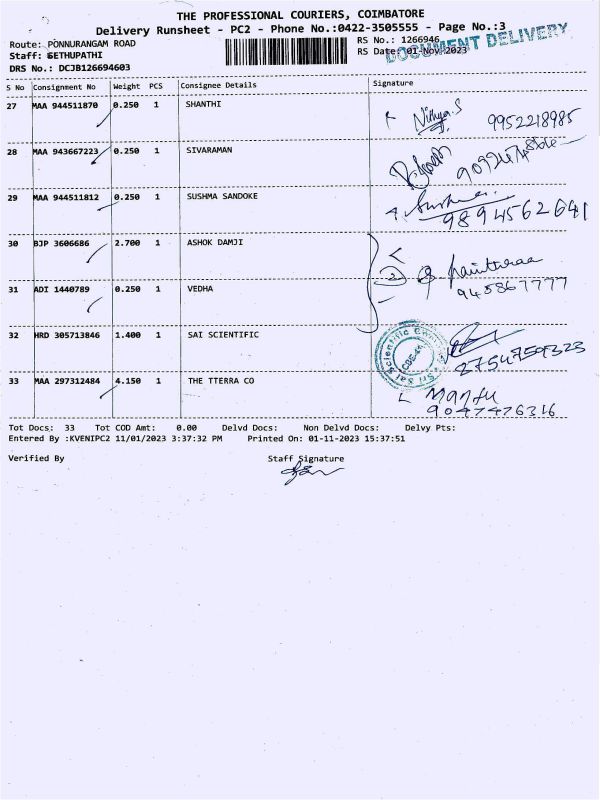 THE PROFESSIONAL COURIERS, COIMBATORE
Delivery Runsheet - PC2 - Phone No.:0422-3505555 - Page No.:3
Route: PONNURANGAM ROAD
Staff: SETHUPATHI
DRS No.: DCJB126694603
RS No.: 1266946
RS Date: 01-Nov-2023
DOCUMENT DELIVERY
S No Consignment No Weight PCS Consignee Details Signature
27 MAA 944511870 0.250 1 SHANTHI Nithya.S 9952218985
28 MAA 943667223 0.250 1 SIVARAMAN
29 MAA 944511812 0.250 1 SUSHMA SANDOKE 9894562641
30 BJP 3606686 2.700 1 ASHOK DAMJI
31 ADI 1440789 0.250 1 VEDHA 945867777
32 HRD 305713846 1.400 1 SAI SCIENTIFIC
33 MAA 297312484 4.150 1 THE TTERRA CO Manju
9047476316
Tot Docs: 33 Tot COD Amt: 0.00 Delvd Docs: Non Delvd Docs: Delvy Pts:
Entered By :KVENIPC2 11/01/2023 3:37:32 PM Printed On: 01-11-2023 15:37:51
Verified By Staff Signature